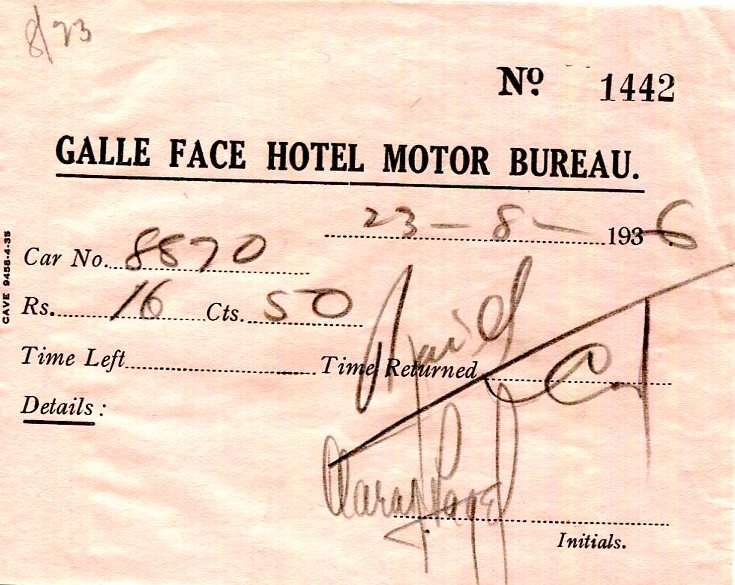 8/23
Nº 1442
GALLE FACE HOTEL MOTOR BUREAU.
23-8-1936
Car No. 8870
Rs. 16 Cts. 50
Time Left Time Returned
Paid
Details:
Initials.
CAVE 9458-4-35